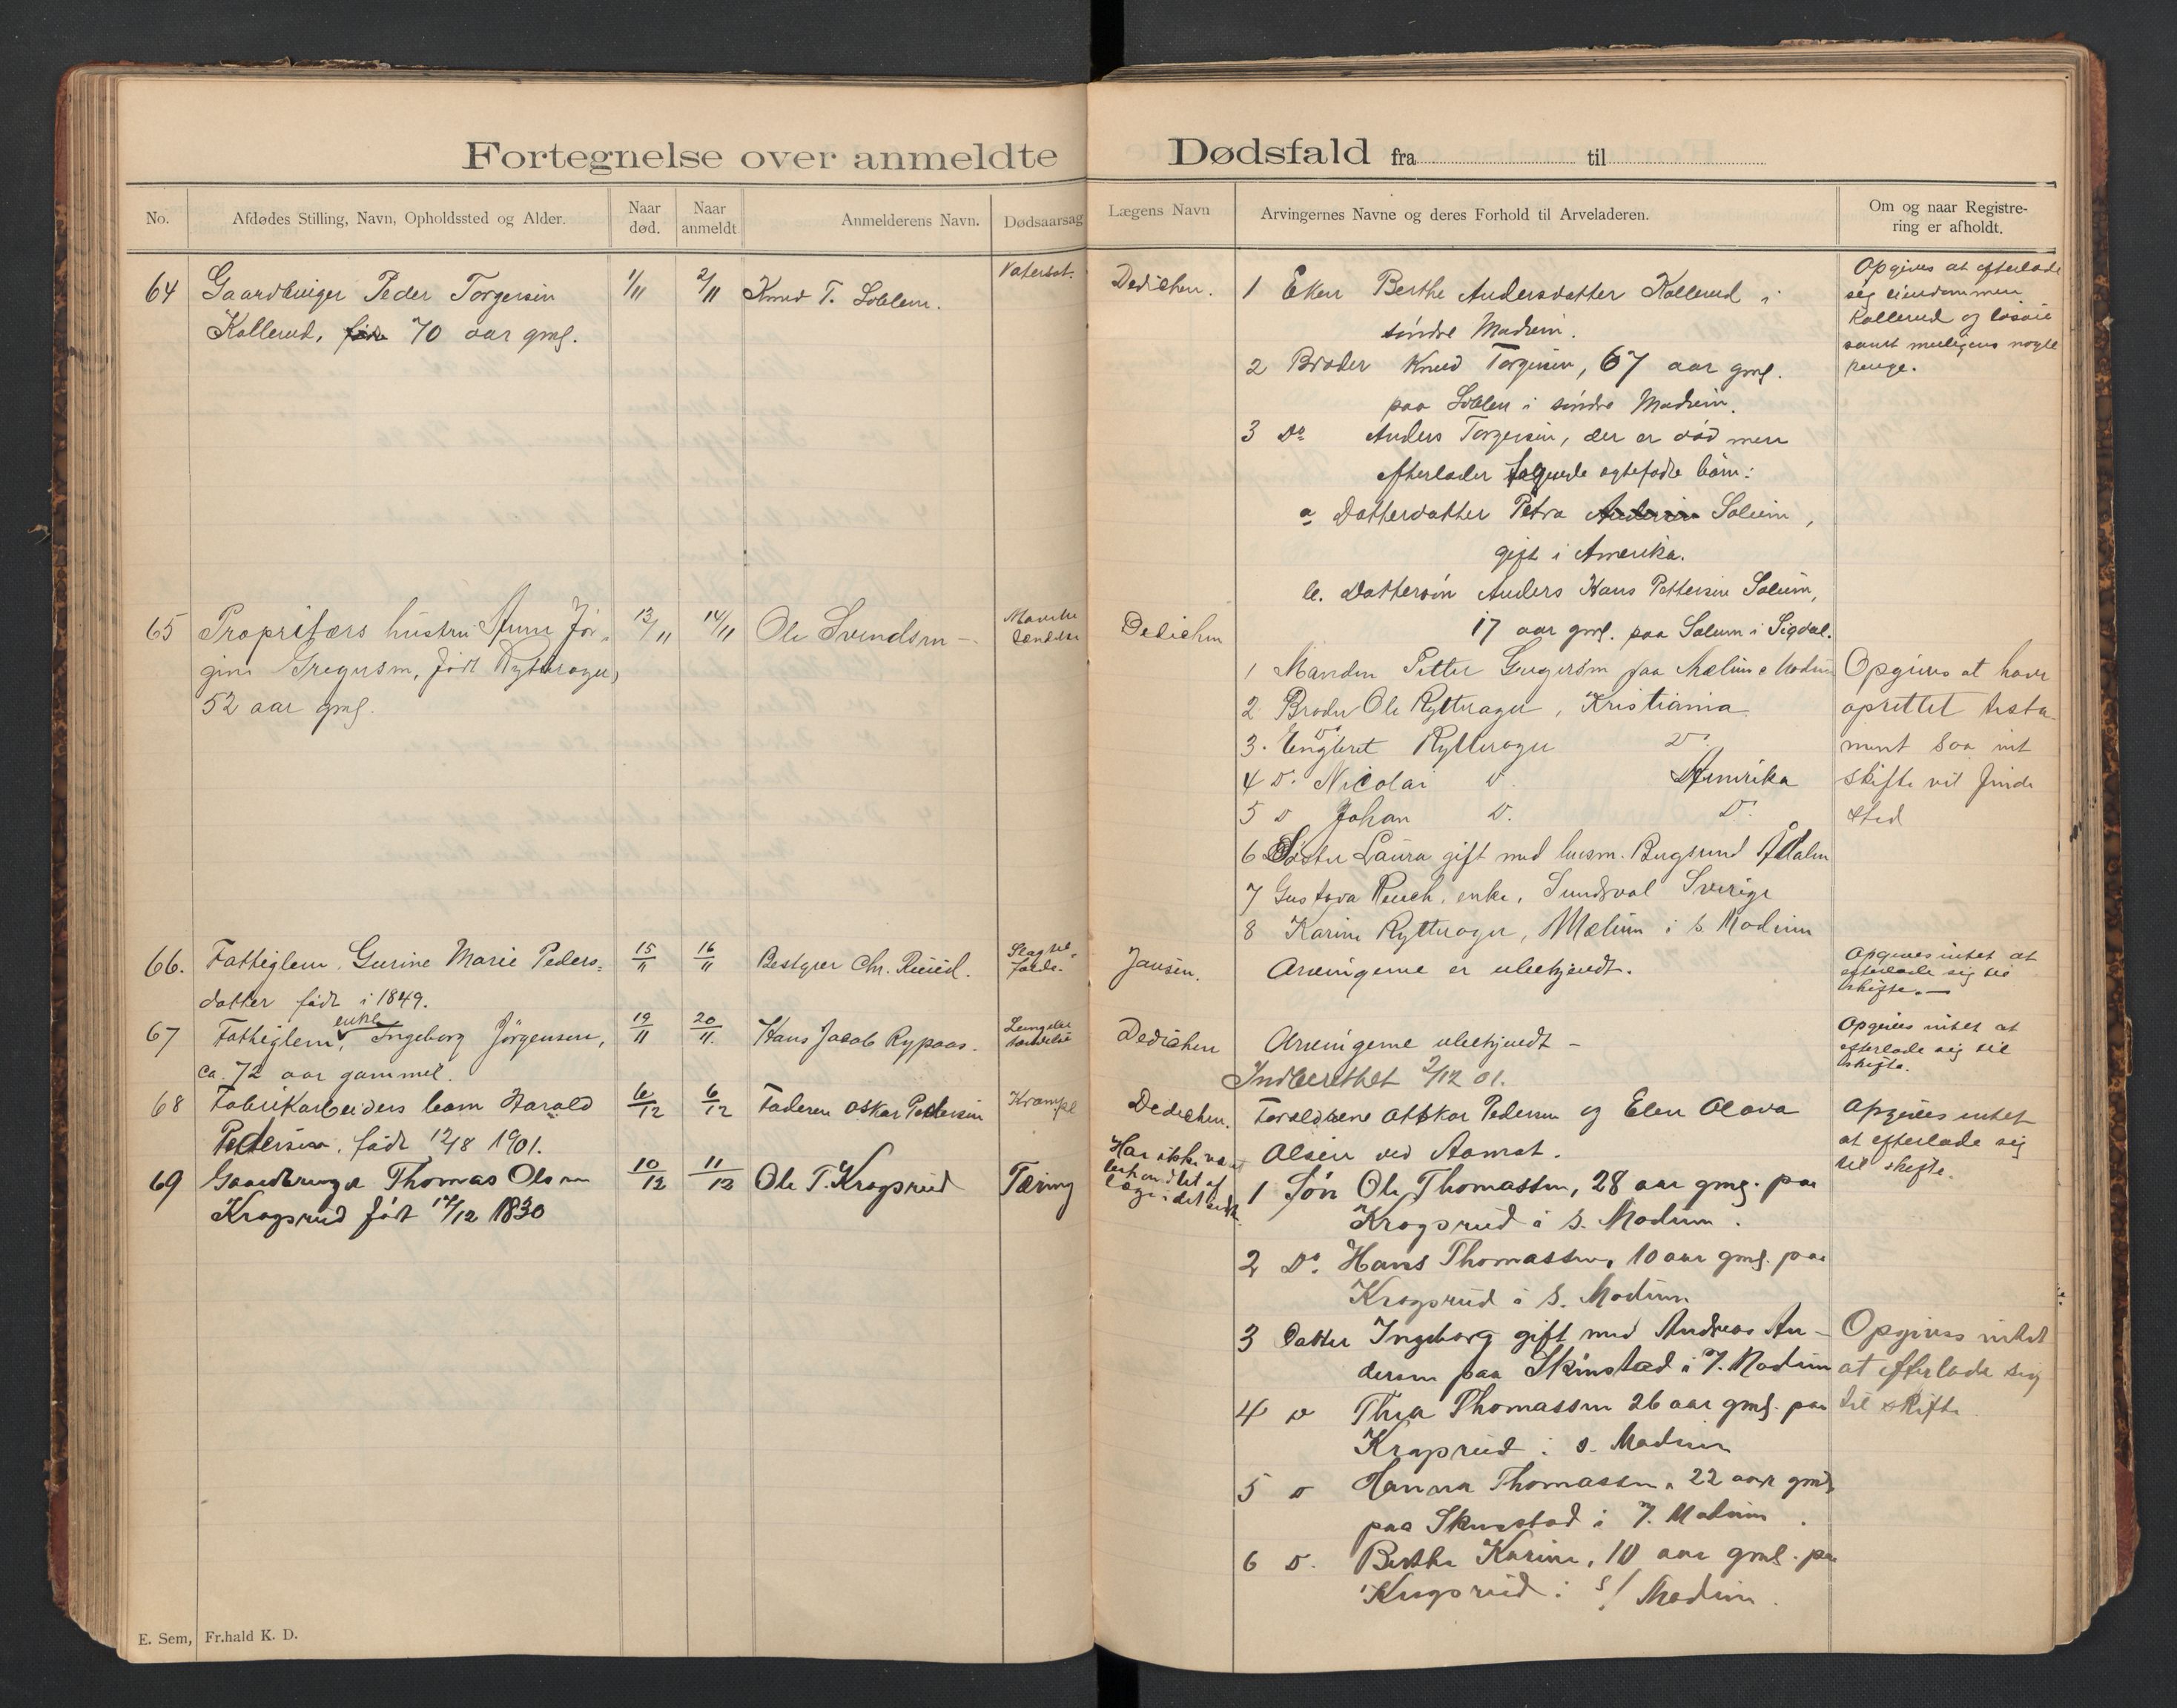 Fortegnelse over anmeldte Dødsfald fra til
No.
Afdødes Stilling, Navn, Opholdssted og Alder.
Naar død.
Naar anmeldt
Anmelderens Navn.
Dødsaarsag
Lægens Navn
Arvingernes Navne og deres Forhold til Arveladeren.
Om og naar Registre-
ring er afholdt.
64 Gaardbruger Peder Torgersen
Kollerud, 70 aar gml.
1/11
2/11
Knud T. Loblem.
Vatersot.
Dedichen.
1 Eken Berthe Andersdatter Kollerud i
søndre Modum.
2 Broder Knud Torgersen, 67 aar gml.
paa Loblem i søndre Modum.
3 Do Anders Torgersen, der er død men
efterlader følgende egtefødte børn:
a Datterdatter Petra Solum,
gift i Amerika.
b. Dattersøn Anders Hans Pettersen Solum,
17 aar gml. paa Solum i Sigdal.
Opgives at efterlade
sig eiendommen
Kollerud og løsøre
samt muligens nogle
penge.
65 Propritærs hustru Anne Jør-
gine Gregersen, født Rytterager,
52 aar gml.
13/11
14/11
Ole Svendsen
Dedichen
1 Manden Petter Gregersen paa Mælum s Modum
2 Broder Ole Rytterager, Kristiania
3. Do Engbret Rytterager Do.
4 D. Nicolai D. Amerika
5 D Johan D. D.
6 Søster Laura gift med husm. Bugsund Ådalen
7 Gustava Reuch, enke, Sundsval Sverige
8 Karine Rytterager, Mælum i s. Modum
Opgives at have
oprettet testa-
ment saa int
skifte vil finde
sted
66. Fattiglem, Gurine Marie Peders-
datter født i 1849.
15/11
16/11
Bestyrer Chr. Ruud.
Slagtil-
fælde.
Jansen.
Arvingerne er ubekjendt.
Opgives intet at
efterlade sig til
skifte.—
67 Fattiglem, enke Ingeborg Jørgensen,
ca. 72 aar gammel.
19/11
20/11.
Hans Jacob Rypaas.
Lunge-
betændelse
Dedichen
Arvingerne ubekjendt —
Indberettet 2/12 01.
Opgives intet at
efterlade sig til
skifte.
68 Fabrikarbeiders barn Harald
Pedersen, født 12/8 1901.
6/12
6/12
Faderen Oskar Pedersen
Krampe
Dedichen.
Forældrene Oskar Pedersen og Elen Olava
Olsen ved Aamot.
Opgives intet
at efterlade sig
til skifte.
69 Gaardbruger Thomas Olsen
Kragsrud født 17/12 1830
10/12
11/12
Ole T. Kragsrud
Tæring
Har ikke været
behandlet af
læge i det sidste.
1 Søn Ole Thomassen, 28 aar gml. paa
Kragsrud i S. Modum.
2 Do. Hans Thomassen, 10 aar gml. paa
Kragsrud i S. Modum
3 Datter Ingeborg gift med Andreas An-
dersen paa Skinstad i N. Modum
4 D Thea Thomassen 26 aar gml. paa
Kragsrud i S. Modum
5 D Hanna Thomassen, 22 aar gml.
paa Skinstad i N. Modum.
6 D. Berthe Karine, 10 aar gml. paa
Kragsrud i S/ Modum.
Opgives intet
at efterlade sig
til skifte
E. Sem, Fr.hald K. D.